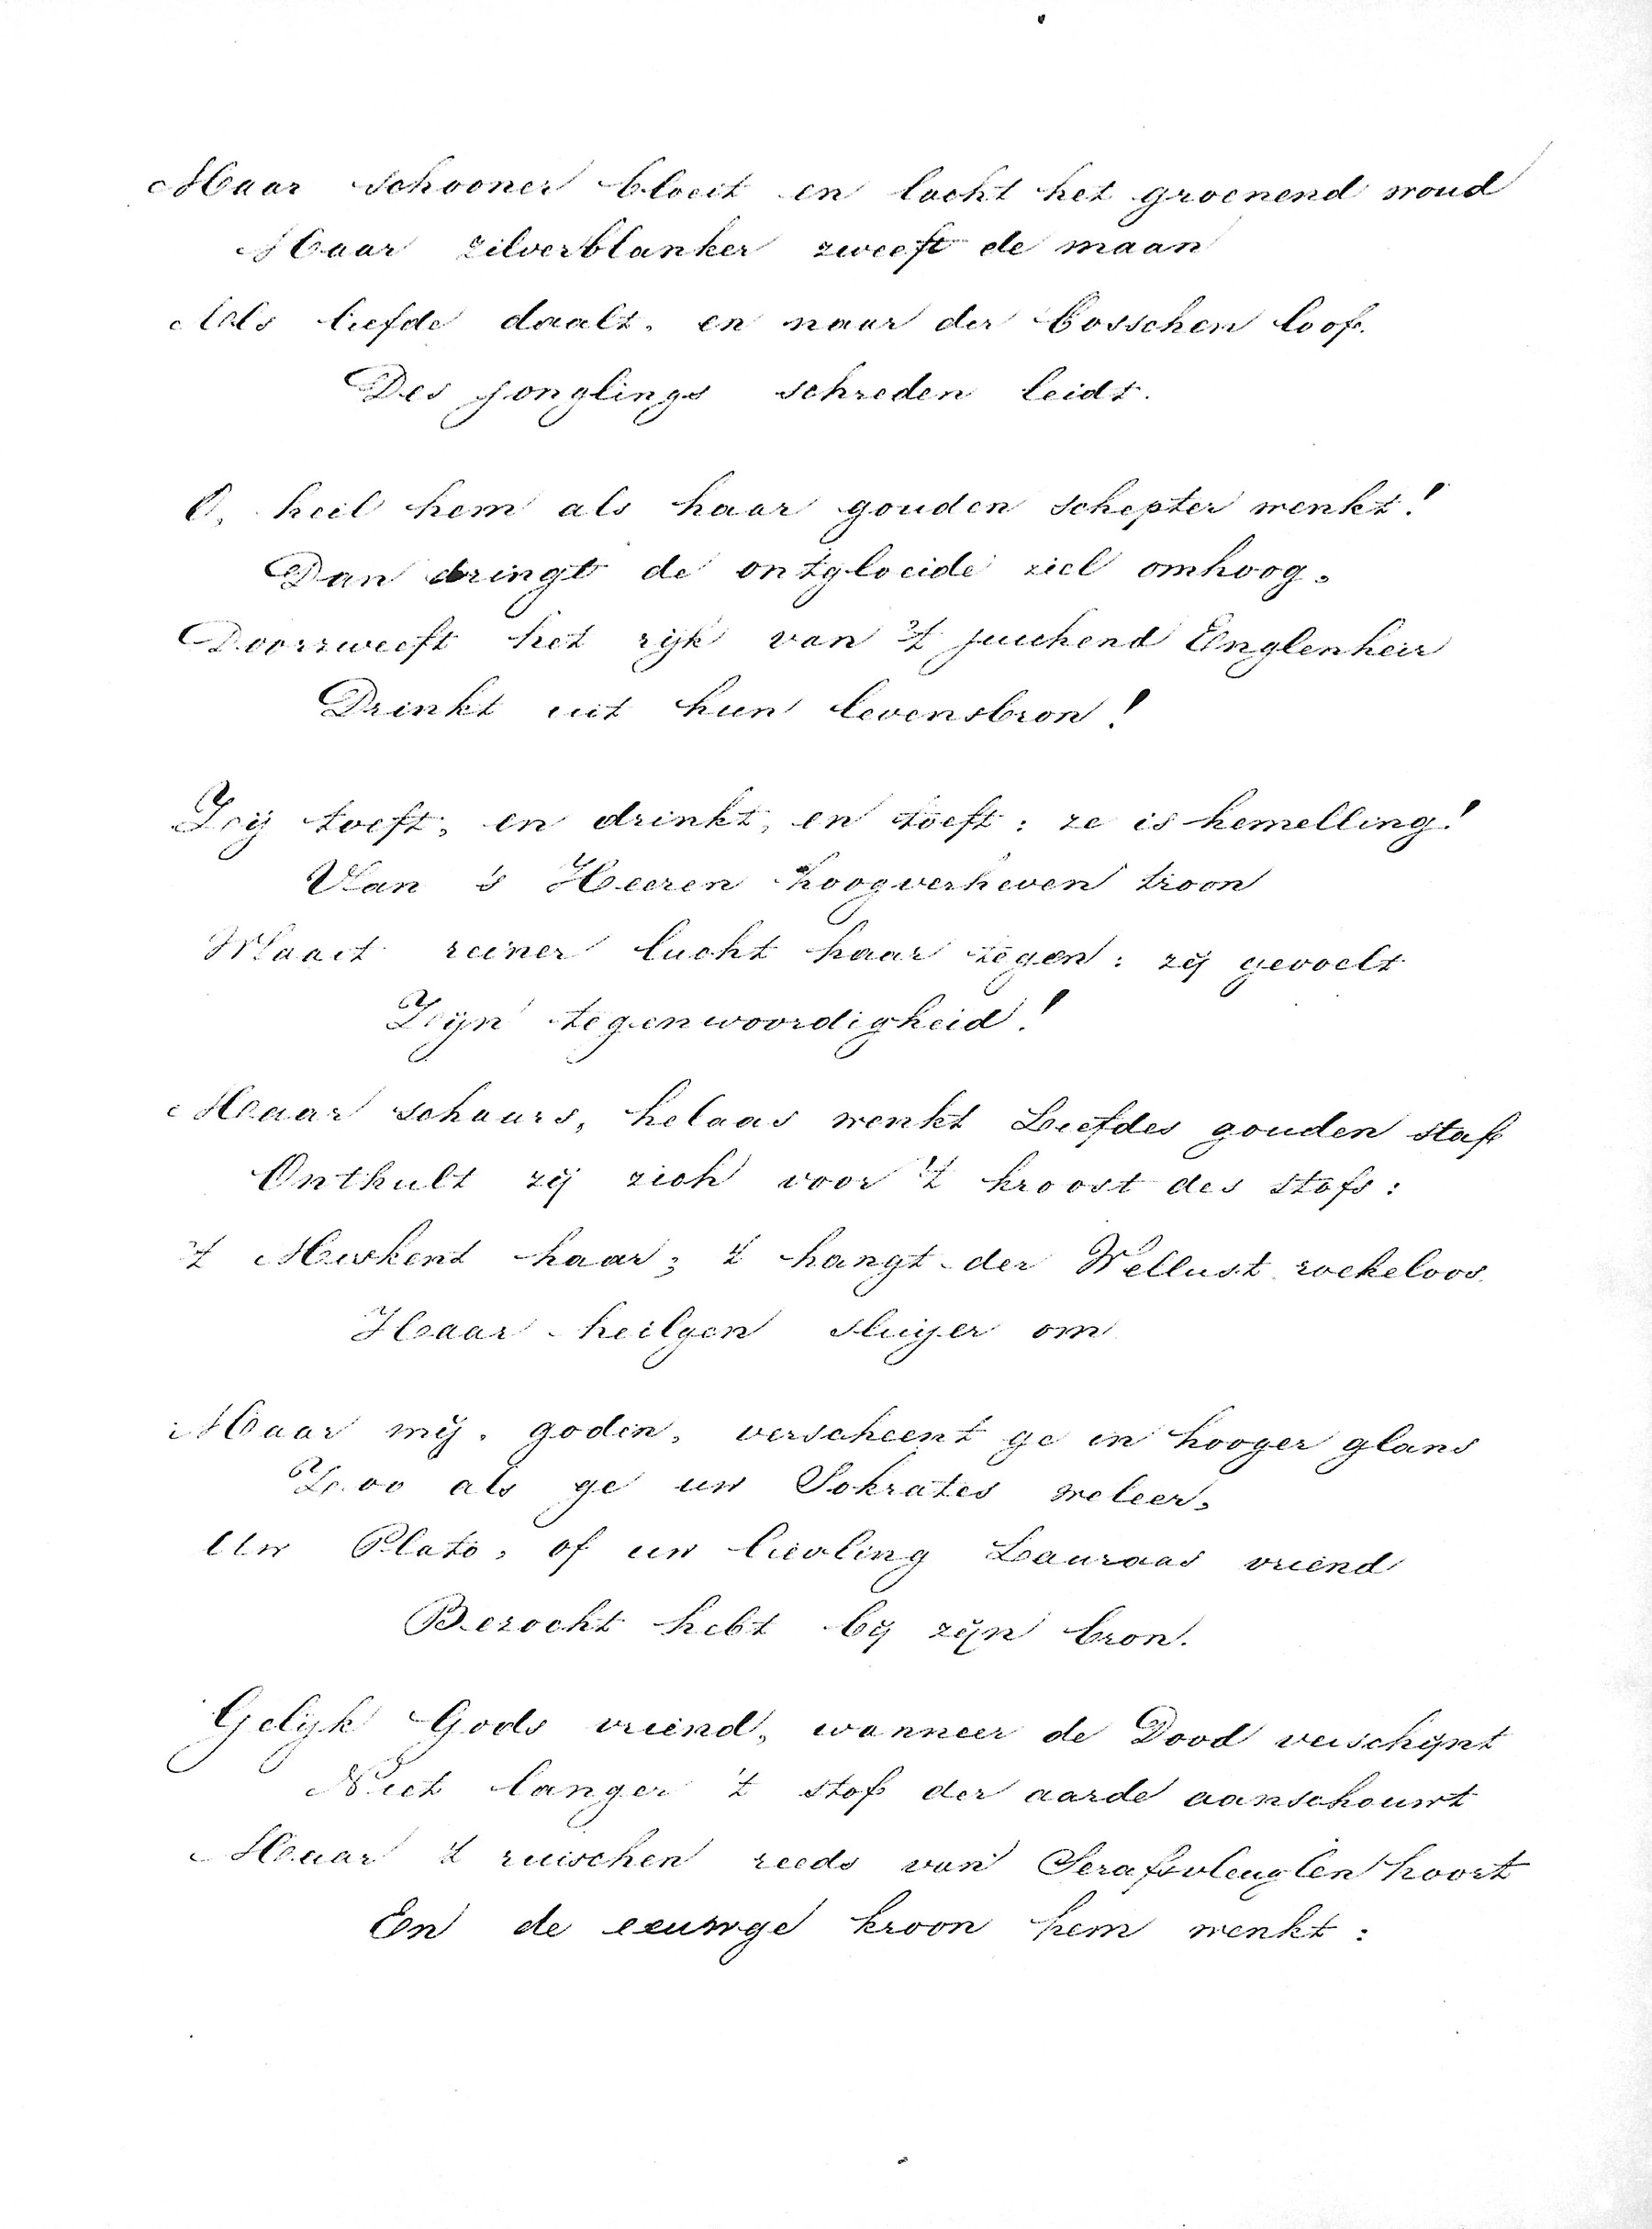 Maar schooner bloeit en lacht het groenend woud
Maar zilverblanker zweeft de maan
Als liefde daalt, en naar der bosschen loof
Des jonglings schreden leidt.
O, heil hem als haar gouden schepter wenkt!
Dan dringt de ontgloeide ziel omhoog,
Doorzweeft het rijk van 't juichend Englenheir
Drinkt uit hun levensbron!
Zij toeft, en drinkt, en toeft: ze is hemelling!
Van 's Heeren hoogverheven troon
Waait reiner lucht haar tegen: zij gevoelt
Zijn tegenwoordigheid!
Maar schaars, helaas wenkt Liefdes gouden staf
Onthult zij zich voor 't kroost des stofs:
't Miskent haar; 't hangt der Wellust roekeloos
Haar heilgen sluijer om
Maar mij, godin, verscheent ge in hooger glans
Zoo als ge uw Sokrates weleer,
Uw Plato, of uw lievling Lauraas vriend
Bezocht hebt bij zijn bron.
Gelijk Gods vriend, wanneer de Dood verschijnt
Niet langer 't stof der aarde aanschouwt
Maar 't ruischen reeds van Serafsvleuglen hoort
En de eeuwge kroon hem wenkt: